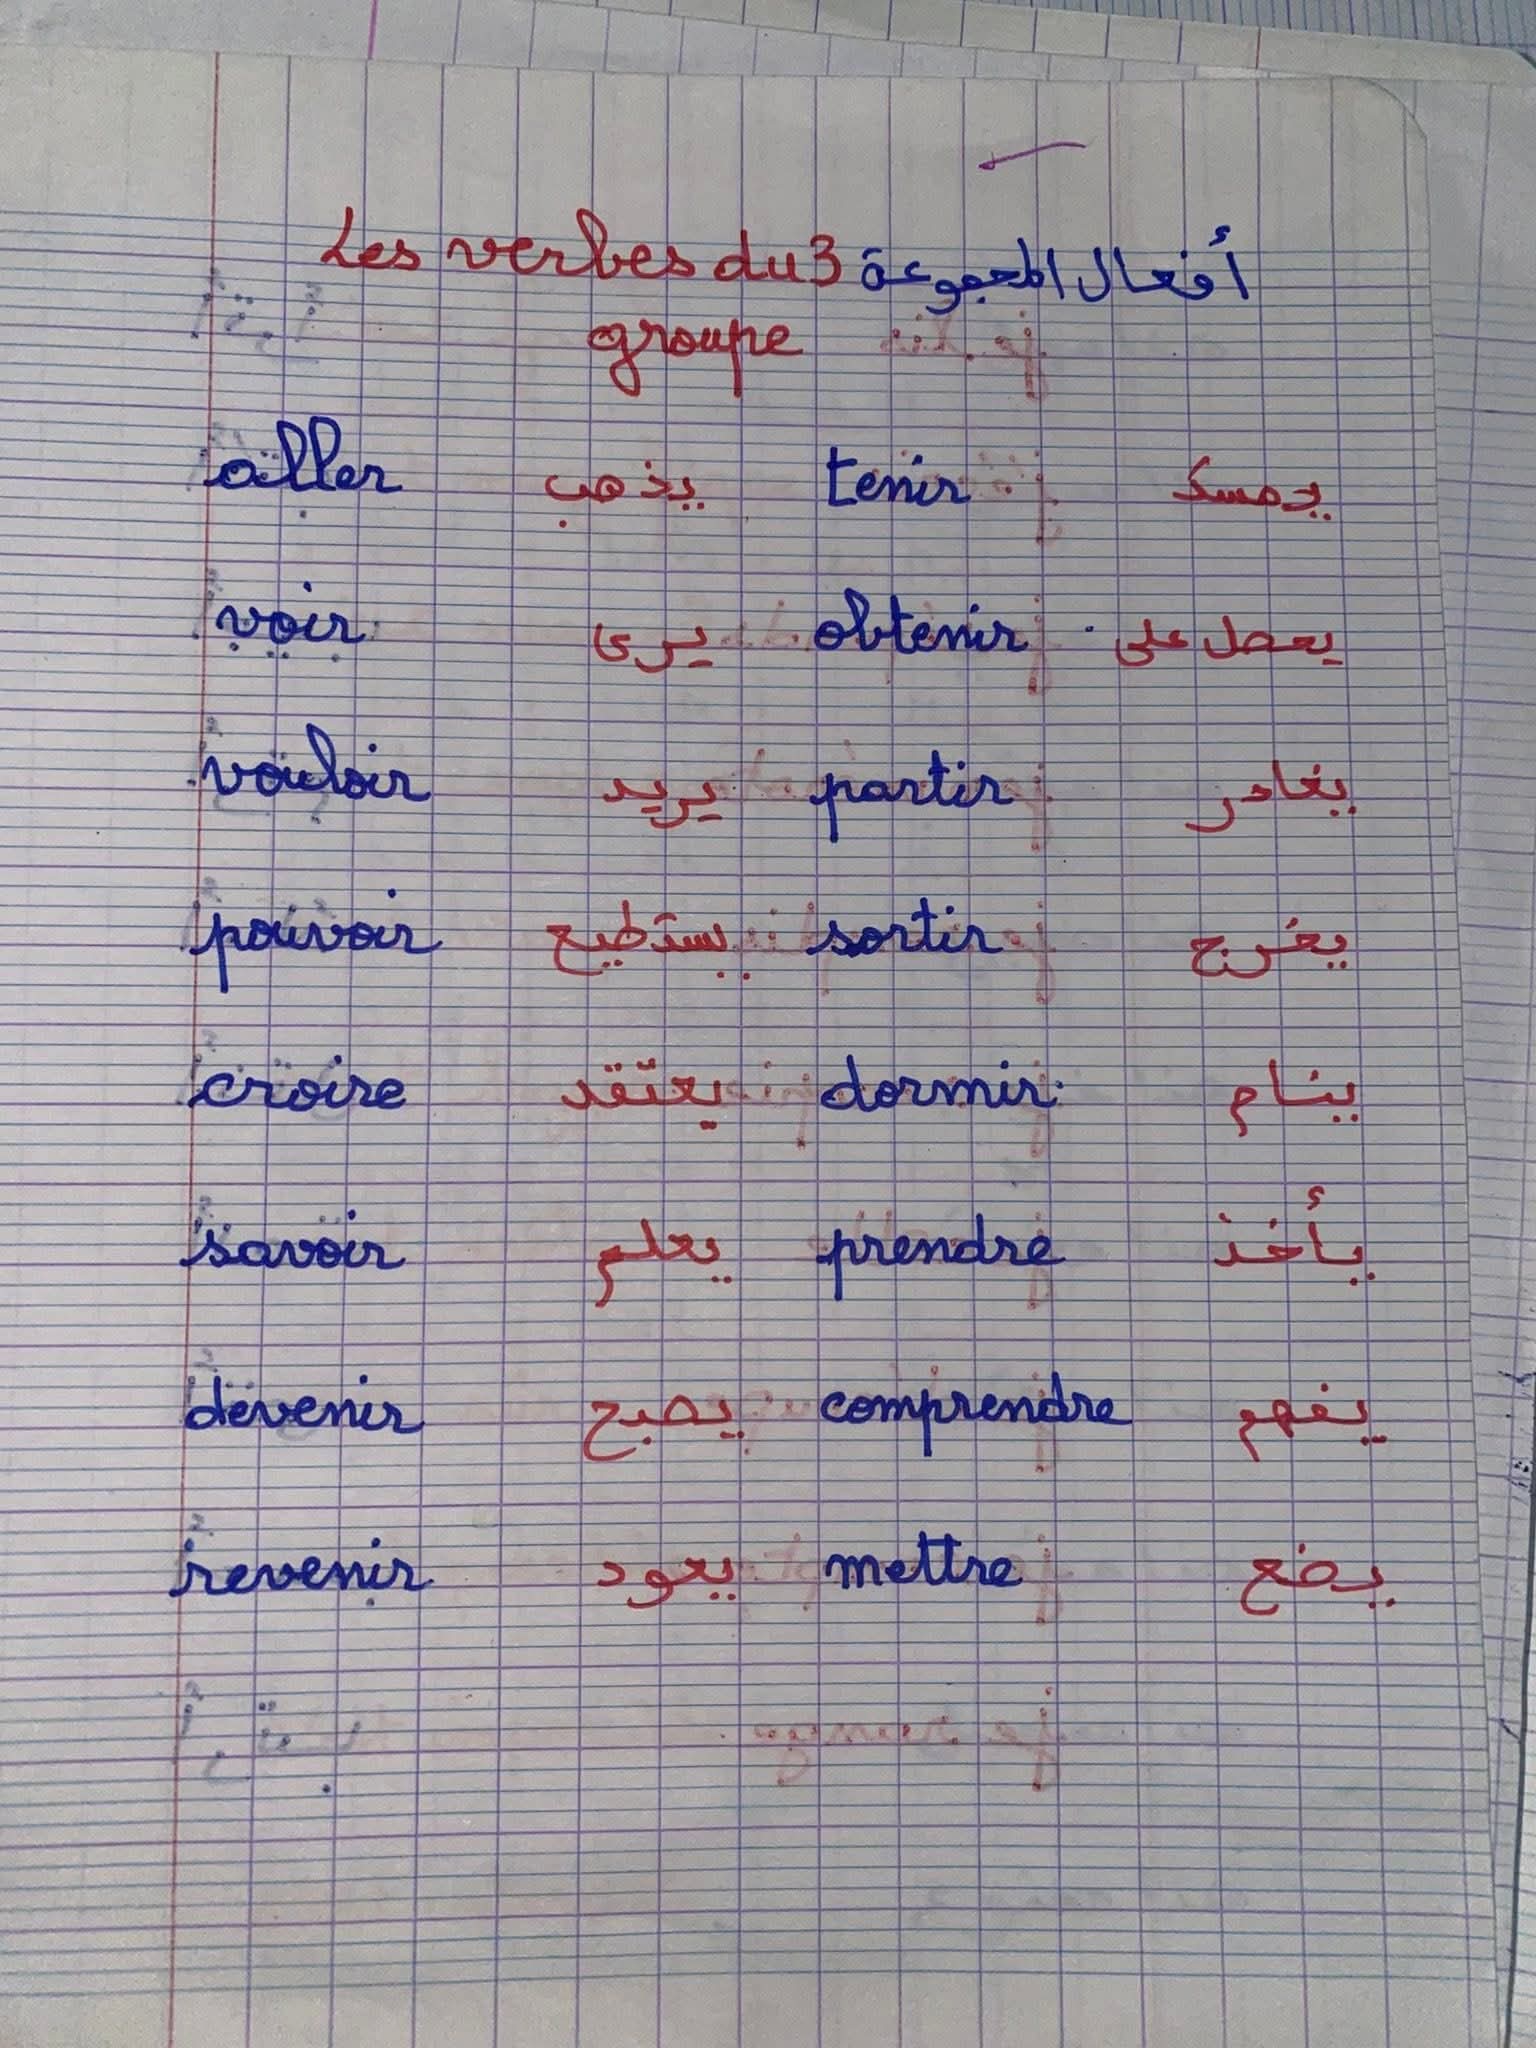 Les verbes du 3 أفعال المجموعة
groupe
aller يذهب tenir يمسك
voir يرى obtenir يحصل على
vouloir يريد partir يغادر
pouvoir يستطيع sortir يخرج
croire يعتقد dormir ينام
savoir يعلم prendre يأخذ
devenir يصبح comprendre يفهم
revenir يعود mettre يضع